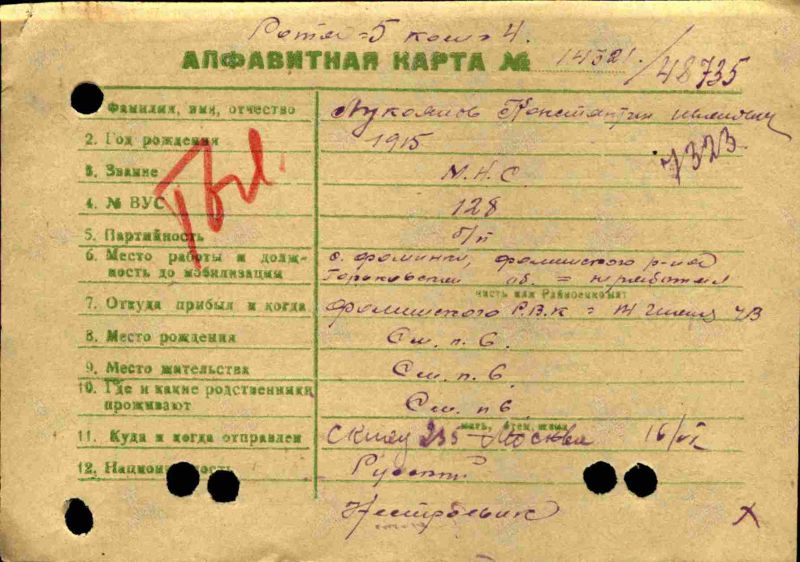 Рота=5 ком=4.
АЛФАВИТНАЯ КАРТА № 14521. /48735
1. Фамилия, имя, отчество Лукоянов Константин
7323
2. Год рождения 1915
3. Звание М.Н.С.
4. № ВУС 128
5. Партийность б/п
6. Место работы и долж- с. Фоминки, Фоминского р-на
ность до мобилизации Горьковской об. =
часть или Райвоенкомат
7. Откуда прибыл и когда Фоминского Р.В.К =
8. Место рождения См. п. 6.
9. Место жительства См. п. 6.
10. Где и какие родственники
проживают См. п 6.
мать, отец, жена
11. Куда и когда отправлен 235 Москва 16/
12. Национальность Русский
Нестроевик
Х